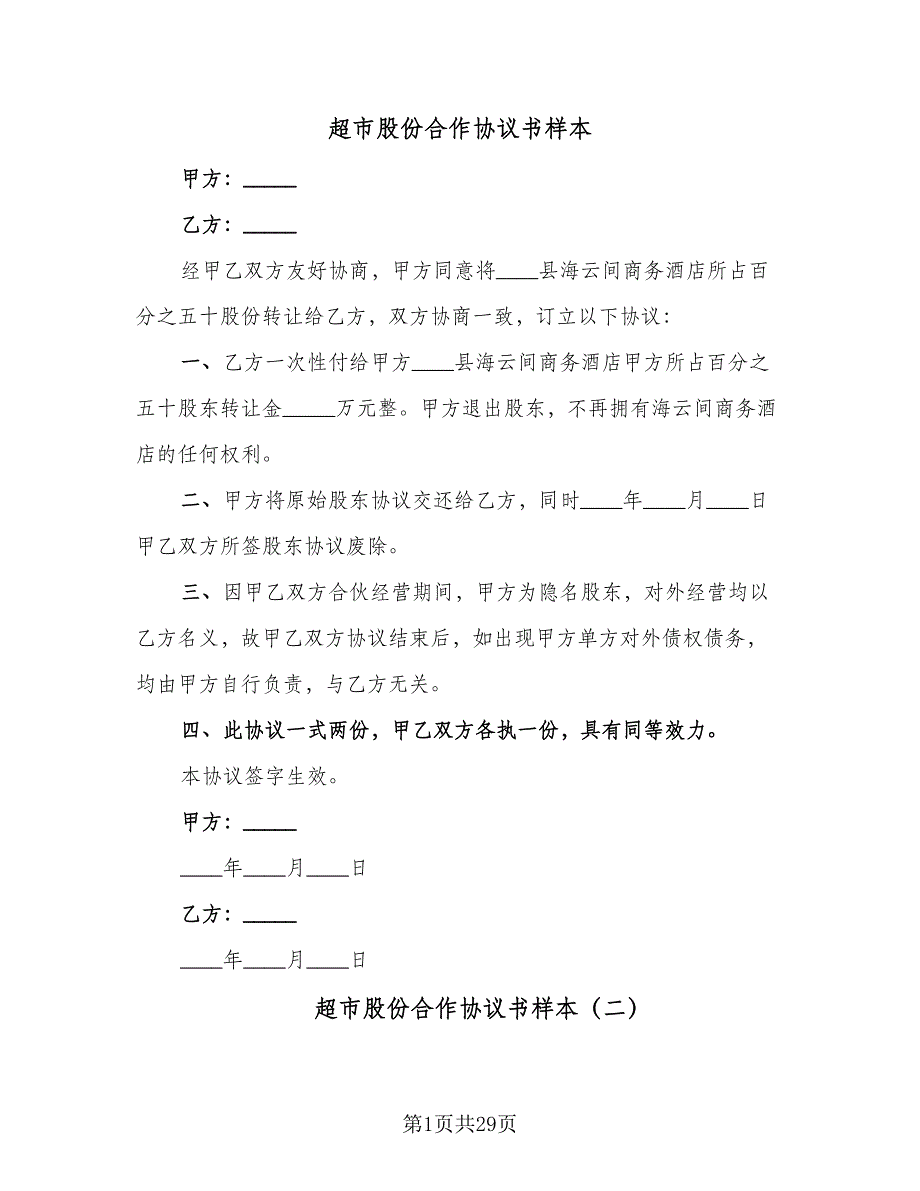 超市股份合作协议书样本
甲方：_____
乙方：_____
经甲乙双方友好协商，甲方同意将____县海云间商务酒店所占百
分之五十股份转让给乙方，双方协商一致，订立以下协议：
一、乙方一次性付给甲方____县海云间商务酒店甲方所占百分之
五十股东转让金_____万元整。甲方退出股东，不再拥有海云间商务酒
店的任何权利。
二、甲方将原始股东协议交还给乙方，同时____年____月____日
甲乙双方所签股东协议废除。
三、因甲乙双方合伙经营期间，甲方为隐名股东，对外经营均以
乙方名义，故甲乙双方协议结束后，如出现甲方单方对外债权债务，
均由甲方自行负责，与乙方无关。
四、此协议一式两份，甲乙双方各执一份，具有同等效力。
本协议签字生效。
甲方：_____
____年____月____日
乙方：_____
____年____月____日
超市股份合作协议书样本（二）
第1页共29页